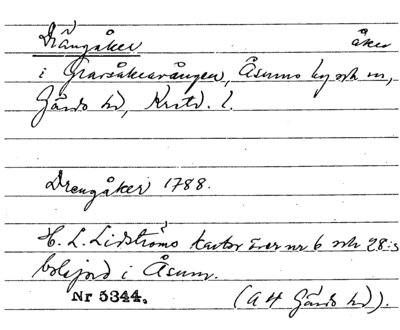 Drängåker åker
i Gravsåkervången, Åsums by och sn,
Gärds hd, Krist. l.
Drengåker 1788.
H. L. Lidströms kartor över nr 6 och 28:s
bolsjord i Åsum.
Nr 5344. (A H Gärds hd).